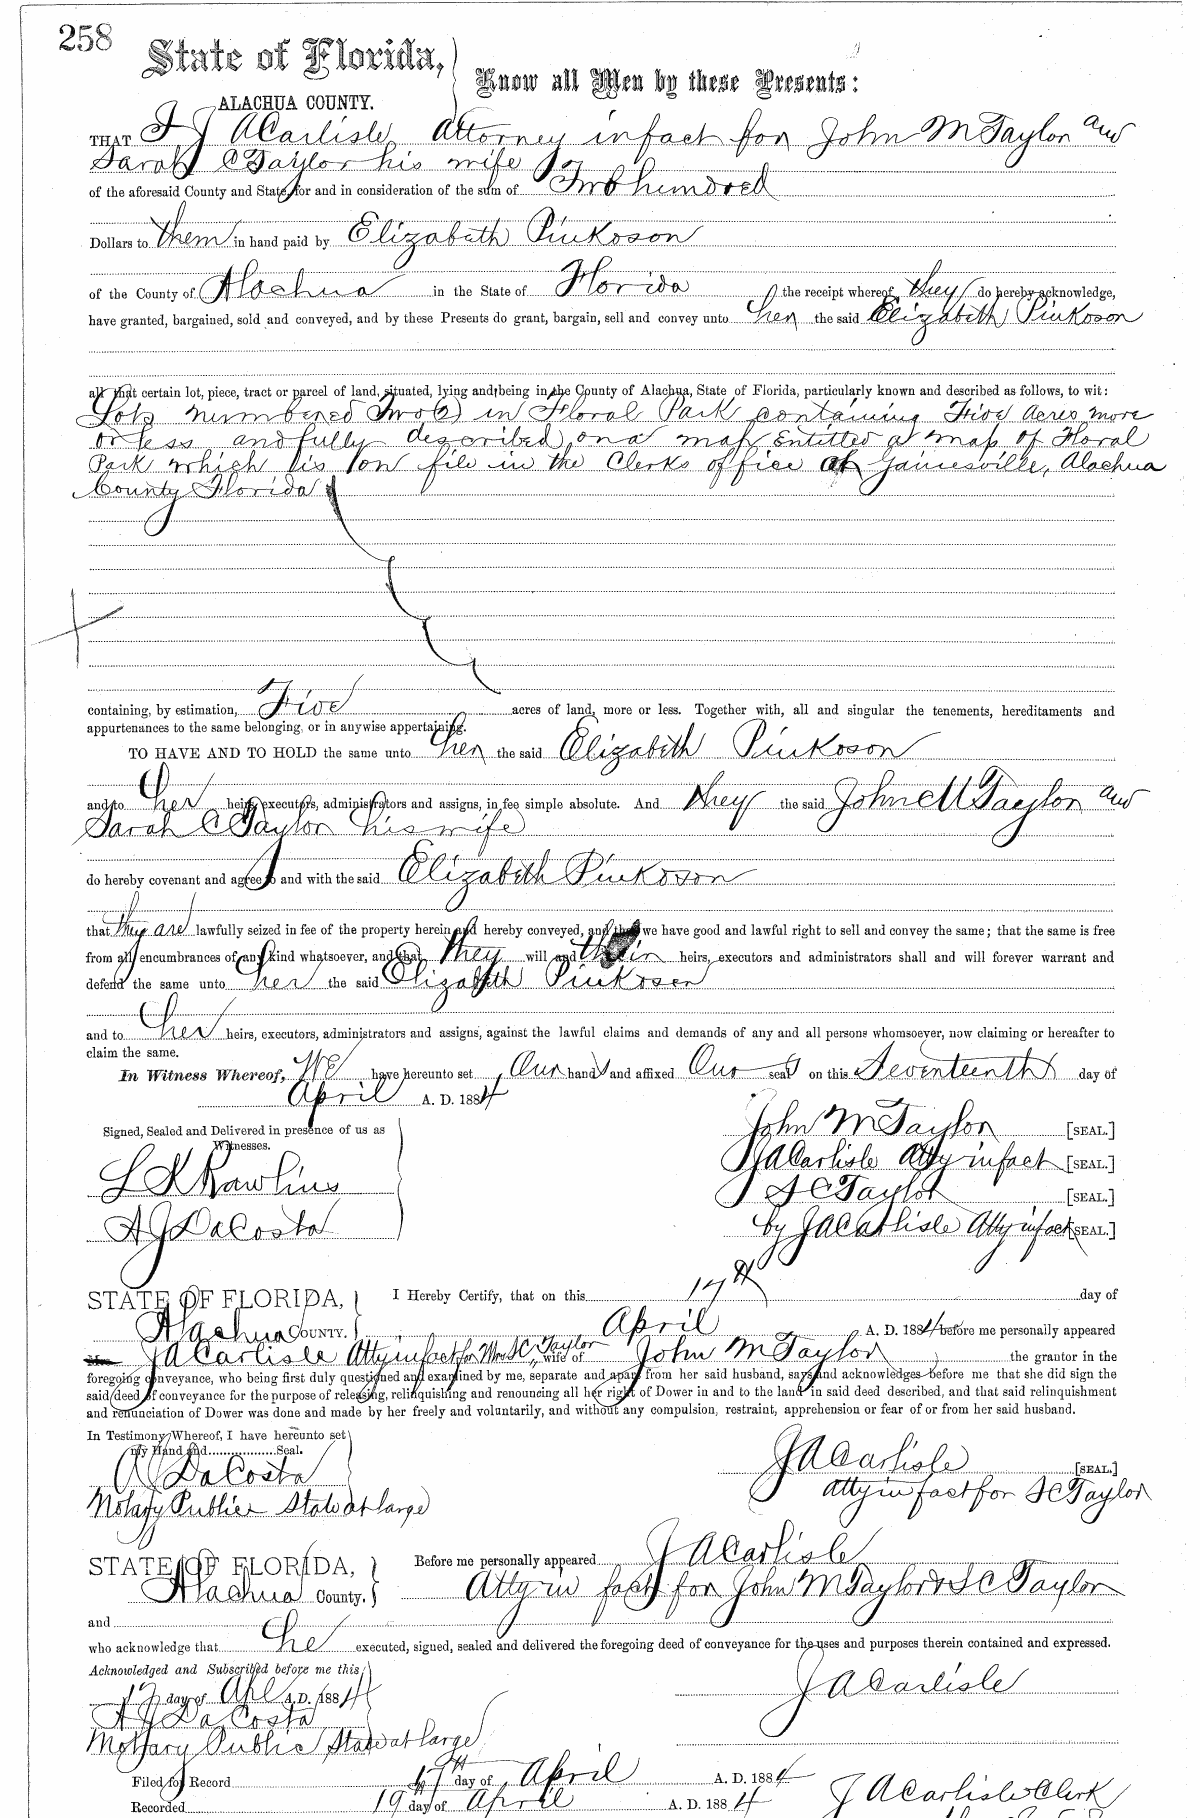 258
State of Florida,
Know all Men by these Presents:
ALACHUA COUNTY.
THAT I J A Carlisle Attorney in fact for John M Taylor and
Sarah C Taylor his wife
of the aforesaid County and State, for and in consideration of the sum of Two hundred
Dollars to them in hand paid by Elizabeth Pinkoson
of the County of Alachua in the State of Florida the receipt whereof they do hereby acknowledge,
have granted, bargained, sold and conveyed, and by these Presents do grant, bargain, sell and convey unto her the said Elizabeth Pinkoson
all that certain lot, piece, tract or parcel of land, situated, lying and being in the County of Alachua, State of Florida, particularly known and described as follows, to wit:
Lots numbered Two (2) in Floral Park containing Five acres more
or less and fully described on a map Entitled a map of Floral
Park which is on file in the Clerks office at Gainesville, Alachua
County Florida
containing, by estimation, Five acres of land, more or less. Together with, all and singular the tenements, hereditaments and
appurtenances to the same belonging, or in anywise appertaining.
TO HAVE AND TO HOLD the same unto her the said Elizabeth Pinkoson
and to her heirs, executors, administrators and assigns, in fee simple absolute. And they the said John M Taylor and
Sarah C Taylor his wife
do hereby covenant and agree to and with the said Elizabeth Pinkoson
that they are lawfully seized in fee of the property herein and hereby conveyed, and that we have good and lawful right to sell and convey the same; that the same is free
from all encumbrances of any kind whatsoever, and that they will and their heirs, executors and administrators shall and will forever warrant and
defend the same unto her the said Elizabeth Pinkoson
and to her heirs, executors, administrators and assigns, against the lawful claims and demands of any and all persons whomsoever, now claiming or hereafter to
claim the same.
In Witness Whereof, We have hereunto set Our hands and affixed Our seals on this Seventeenth day of
April A. D. 1884
Signed, Sealed and Delivered in presence of us as
Witnesses.
John M Taylor [SEAL.]
J A Carlisle Atty in fact [SEAL.]
L K Rawlins
S C Taylor [SEAL.]
A J DaCosta
by J A Carlisle Atty in fact [SEAL.]
STATE OF FLORIDA,
I Hereby Certify, that on this 17th day of
Alachua COUNTY.
April A. D. 1884 before me personally appeared
J A Carlisle Atty in fact for Mrs S C Taylor, wife of John M Taylor the grantor in the
foregoing conveyance, who being first duly questioned and examined by me, separate and apart from her said husband, says and acknowledges before me that she did sign the
said deed of conveyance for the purpose of releasing, relinquishing and renouncing all her right of Dower in and to the land in said deed described, and that said relinquishment
and renunciation of Dower was done and made by her freely and voluntarily, and without any compulsion, restraint, apprehension or fear of or from her said husband.
In Testimony Whereof, I have hereunto set
my Hand and................Seal.
A J DaCosta
Notary Public State at large
J A Carlisle [SEAL.]
atty in fact for S C Taylor
STATE OF FLORIDA,
Before me personally appeared J A Carlisle
Alachua County.
Atty in fact for John M Taylor & S C Taylor
and
who acknowledge that he executed, signed, sealed and delivered the foregoing deed of conveyance for the uses and purposes therein contained and expressed.
Acknowledged and Subscribed before me this
17 day of Apl A.D. 1884
J A Carlisle
A J DaCosta
Notary Public State at large
Filed for Record 17th day of April A. D. 1884
J A Carlisle Clerk
Recorded 19th day of April A. D. 1884